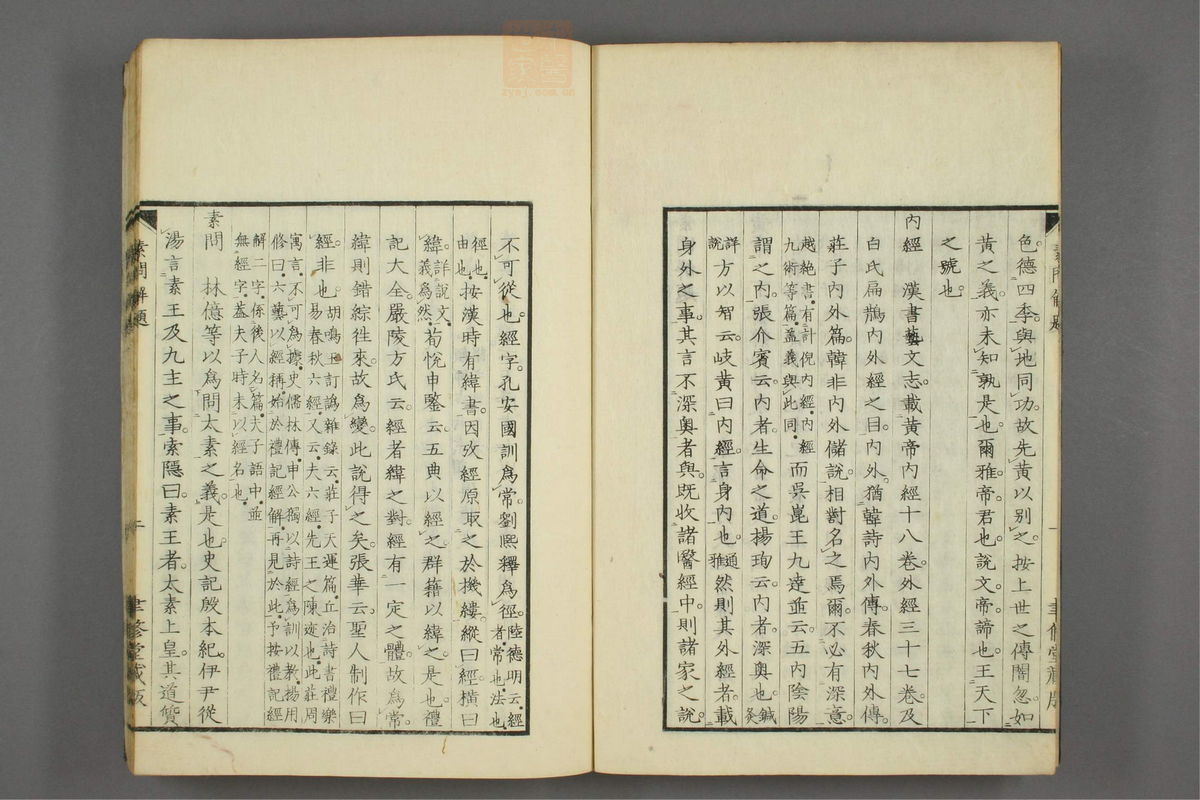 色德四季。與地同功。故先黃以別之。按上世之傳闇忽如
黃之義。亦未知孰是也。爾雅。帝。君也。說文。帝。諦也。王天下
之號也。
內經　漢書藝文志。載黃帝內經十八卷。外經三十七卷。及
白氏扁鵲內外經之目。內外。猶韓詩內外傳。春秋內外傳。
莊子內外篇。韓非內外儲說。相對名之焉爾。不必有深意
越絕書。有計倪內經。內經
九術等篇。蓋義與此同。
而吳崑王九達並云。五內陰陽
謂之內。張介賓云。內者。生命之道。楊珣云。內者。深奧也。
鍼灸
詳說
方以智云。岐黃曰內經。言身內也。
通雅
然則其外經者。載
身外之事。其言不深奧者與。既收諸醫經中。則諸家之說。
不可從也。經字。孔安國訓爲常。劉熙釋爲徑。
陸德明云。經
者。常也。法也。
徑也。
由也。
按漢時有緯書。因攷經原取之於機縷。縱曰經。橫曰
緯。
詳說文。
義爲然。
荀悅申鑒云。五典以經之。群籍以緯之。是也。禮
記大全。嚴陵方氏云。經者緯之對。經有一定之體。故爲常。
緯則錯綜往來。故爲變。此說得之矣。張華云。聖人制作曰
經。非也。
胡鳴玉訂譌雜錄云。莊子天運篇。丘治詩書禮樂
易春秋六經。又云。夫六經。先王之陳迹也。此莊周
寓言。不可爲據。史儒林傳。申公獨以詩經爲訓以教。楊用
修曰。六藝以經稱。始於禮記經解。再見於此。予按禮記經
解二字。係後人名篇。夫子語中。並
無經字。蓋夫子時。未以經名也。
素問　林億等以爲問太素之義。是也。史記殷本紀。伊尹從
湯言素王及九主之事。索隱曰。素王者。太素上皇。其道質
素問解題
聿修堂藏版
素問解題
聿修堂藏版
zysj.com.cn